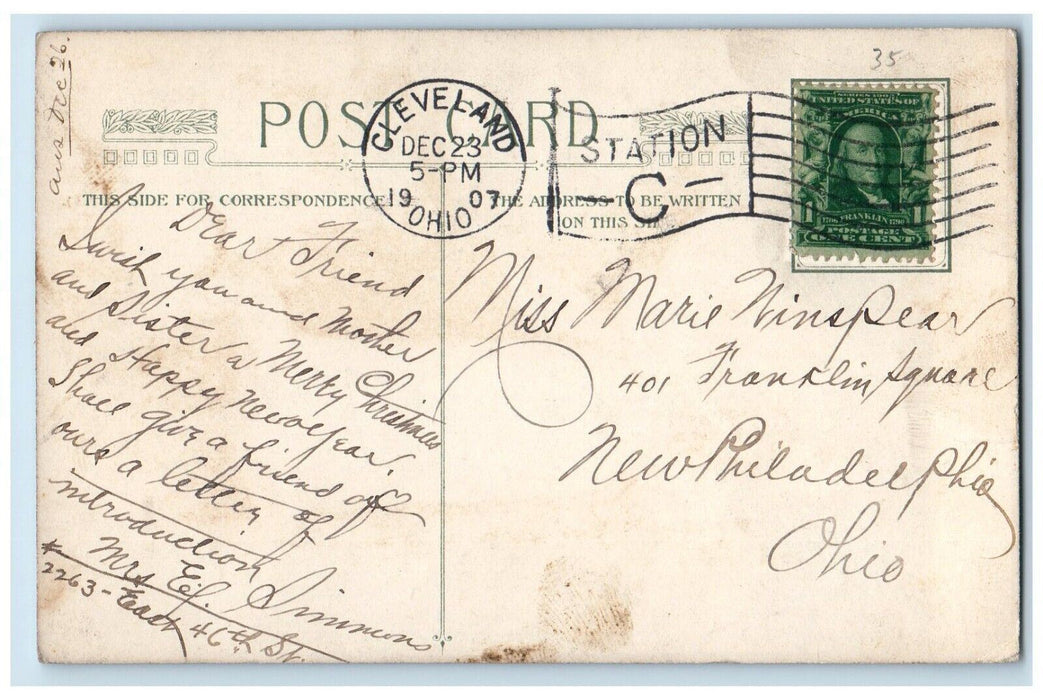 ans Dec 26.
35
POST CARD
CLEVELAND
DEC 23
5-PM
19 07
OHIO
STATION
C
UNITED STATES OF
AMERICA
1 FRANKLIN 1
1706 1790
POSTAGE
ONE CENT
THIS SIDE FOR CORRESPONDENCE
THE ADDRESS TO BE WRITTEN
ON THIS SI
Dear Friend
I wish you and Mother
and Sister a Merry Christmas
and Happy New Year.
Shall give a friend of
ours a letter of
introduction
Mrs E.J. Simmons
# 2263 - East 46th St.
Miss Marie Winspear
401 Franklin Square
New Philadelphia
Ohio